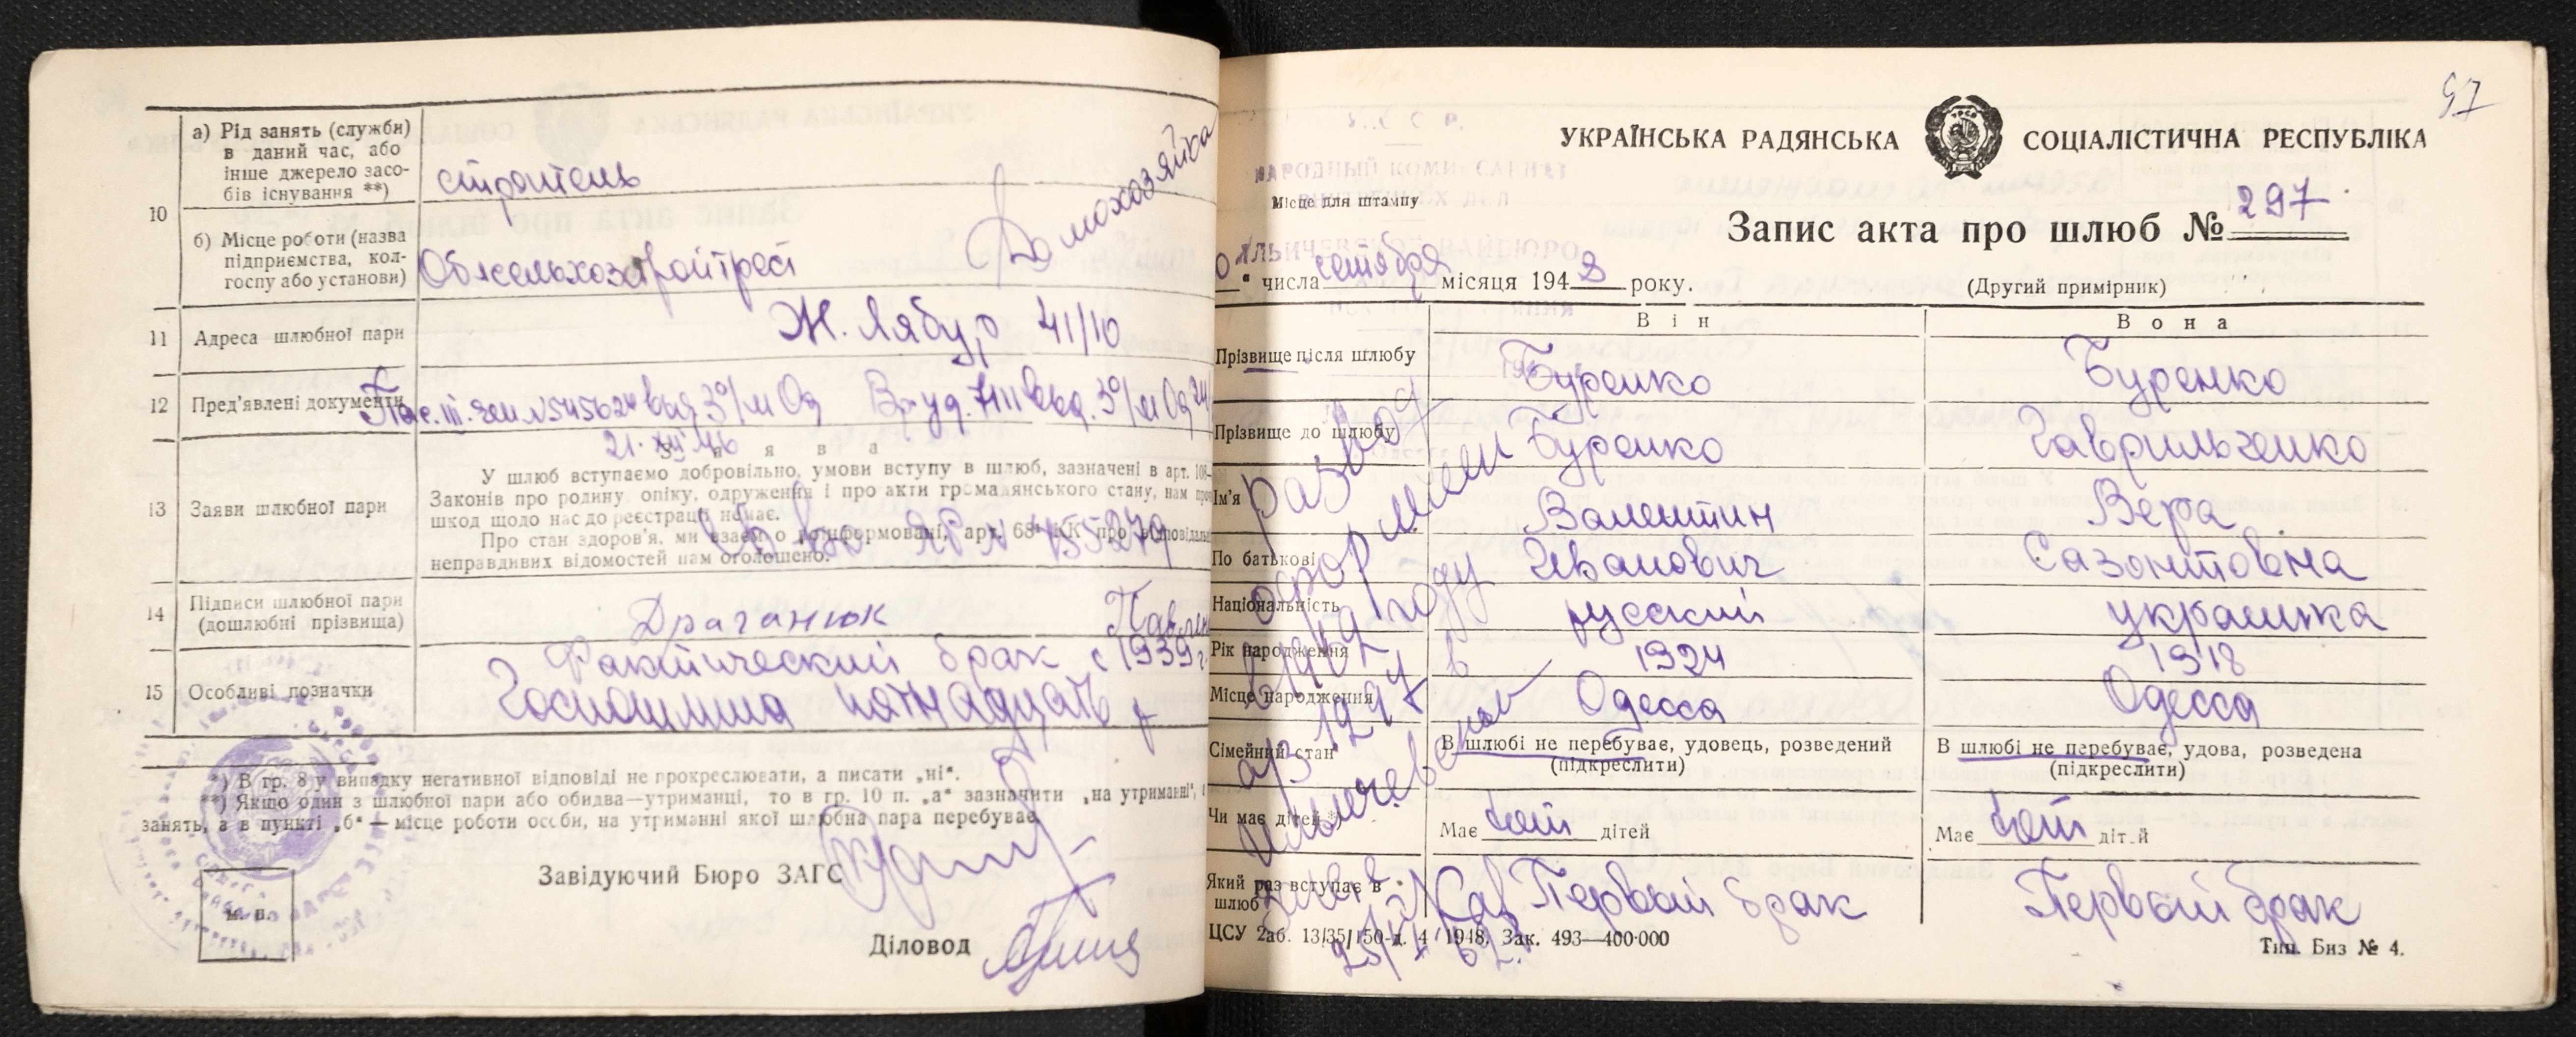 10
а) Рід занять (служби)
в даний час, або
інше джерело засо-
бів існування **)
строитель
Домохозяйка
б) Місце роботи (назва
підприємства, кол-
госпу або установи)
Облсельхозстройтрест
11 Адреса шлюбної пари
Ж. Лябур 41/10
12 Пред'явлені документи
21.XII 46
13 Заяви шлюбної пари
З а я в а
У шлюб вступаємо добровільно, умови вступу в шлюб, зазначені в арт. 108-
Законів про родину, опіку, одруження і про акти громадянського стану, нам
шкод щодо нас до реєстрації немає.
Про стан здоров'я, ми взаємно поінформовані, арт. 68 КК про
неправдивих відомостей нам оголошено.
14 Підписи шлюбної пари
(дошлюбні прізвища)
Драганюк
15 Особливі позначки
Фактический брак с 1939 г.
Госпошлина пятнадцать р
*) В гр. 8 у випадку негативної відповіді не прокреслювати, а писати „ні“.
**) Якщо один з шлюбної пари або обидва—утриманці, то в гр. 10 п. „а“ зазначити „на утриманні“,
занять, а в пункті „б“ — місце роботи особи, на утриманні якої шлюбна пара перебуває.
Завідуючий Бюро ЗАГС
м. п.
Діловод
97
УКРАЇНСЬКА РАДЯНСЬКА СОЦІАЛІСТИЧНА РЕСПУБЛІКА
НАРОДНЫЙ КОМИССАРИАТ
ВНУТРЕННИХ ДЕЛ
Місце для штампу
Запис акта про шлюб № 297
ИЛЬИЧЕВСКОЕ РАЙБЮРО
“ числа сентября місяця 1948 року.
(Другий примірник)
Він
Вона
Прізвище після шлюбу
Буренко
Буренко
Прізвище до шлюбу
Буренко
Гаврильченко
Ім'я
Валентин
Вера
По батькові
Иванович
Сазонтовна
Національність
русский
украинка
Рік народження
1924
1918
Місце народження
Одесса
Одесса
Сімейний стан
В шлюбі не перебуває, удовець, розведений
(підкреслити)
В шлюбі не перебуває, удова, розведена
(підкреслити)
Чи має дітей *)
Має дітей
Має дітей
Який раз вступає в
шлюб
Первый брак
Первый брак
развод
оформлен
в 1962 году
а/з 1297 в
Ильичевском
ЦСУ 2аб. 13/35/150-д. 4 1948. Зак. 493—400·000
Тип. Биз № 4.